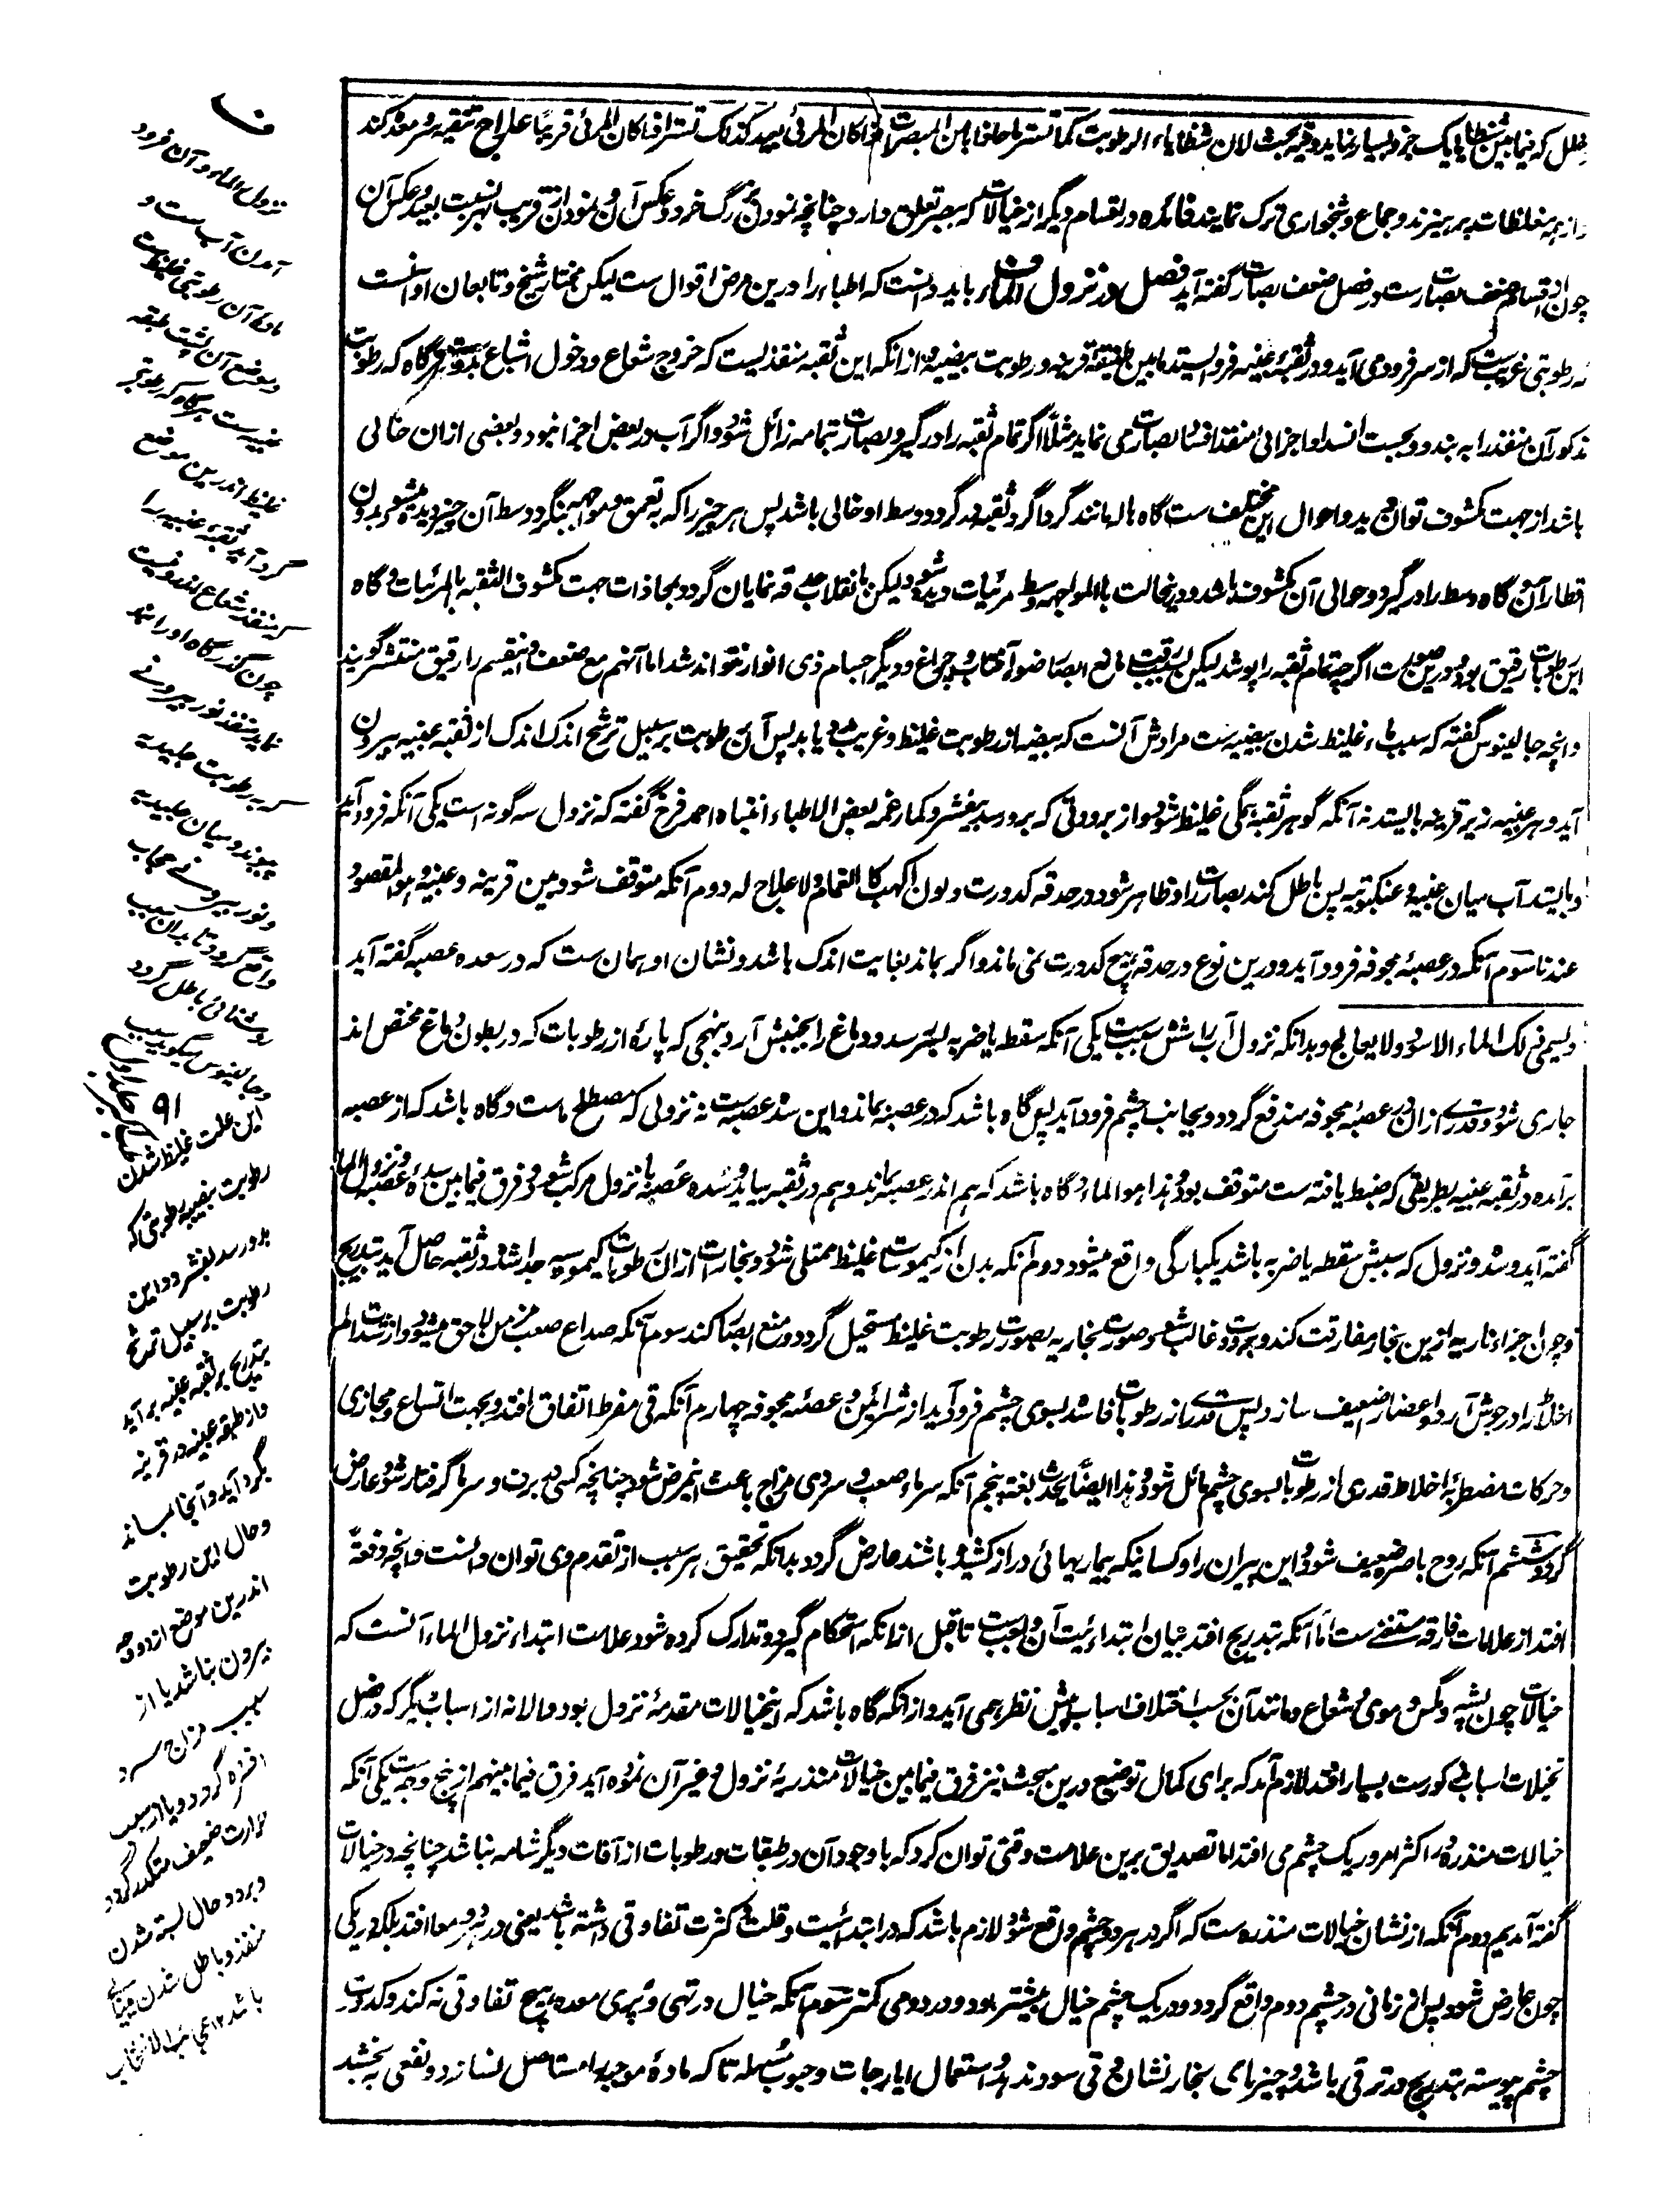 خلل که فیما بین شظایا یک جزو بسیار نماید وفیه بحث لان شظایاء الرطوبت کما تستر ما خلفها من المبصرات اذا کان المرئی بعید کذلک تستر اذا کان المرئی قریبًا علاج تنقیهٔ سر و معده کنند
و از همه مغلظات بپرهیزند و جماع و شبخواری ترک نمایند فائده در اقسام دیگر از خیالات که ببصر تعلق دارد چنانچه نمودن بزرگ خرد و عکس آن و نمودن قریب بهر نسبت بعید و عکس آن
چون از اقسام ضعف بصارت ست در فصل ضعف بصارت گفته آید فصل در نزول الماء باید دانست که اطباء را درین مرض اقوال ست لیکن مختار شیخ و تابعان او آنست
که رطوبتی غریب ست که از سر فرود می آید و در ثقبهٔ عنبیه فرو ایستد مابین طبقهٔ قرنیه و رطوبت بیضیه و از آنکه این ثقبه منفذیست که خروج شعاع و دخول اشباح بدوست هرگاه که رطوبت
مذکور آن منفذ را به بندد و بحسب انسداد اجزائی منفذ افساد بصارت می نماید مثلاً اگر تمام ثقبه را در گیرد بصارت بتمامه زائل شود و اگر آب در بعض اجزا بود و بعضی ازان خالی
باشد از جهت مکشوف توان دید و احوال این مختلف ست گاه هاله مانند گرداگرد ثقبه در گردد و وسط او خالی باشد پس هر چیز را که به تعمق و مواجهه بنگرد وسط آن چیز دیده میشود بدون
اقطار آن و گاه وسط را در گیرد و حوالی آن مکشوف باشد و درینحالت بالمواجهه وسط مرئیات دیده نشود ولیکن بانقلاب حدقه نمایان گردد بمحاذات جهت مکشوف الثقبه بالمرئیات و گاه
این رطوبات رقیق بود و درین صورت اگرچه تمام ثقبه را پوشد لیکن بسبب رقت مانع ابصار ضوء آفتاب و چراغ و دیگر اجسام ذی انوار نتواند شد اما آنهم مع ضعف و اینقسم را رقیق منتشر گویند
و انچه جالینوس گفته که سبب ماء غلیظ شدن بیضیه ست مرادش آنست که بیضیه از رطوبت غلیظ و غریب مدد یابد پس آن رطوبت بر سبیل ترشح اندک اندک از ثقبه عنبیه بیرون
آید و بر عنبیه زیر قرنیه بایستد نه آنکه گوهر ثقبه بگی غلیظ شود و از برودتی که برو رسد بیفشرد کما زعمه بعض الاطباء انتباه احمد فرخ گفته که نزول سه گونه است یکی آنکه فرود آید
و بایستد آب میان عنبیه و عنکبوتیه پس باطل کند بصارت را و ظاهر شود در حدقه کدورت و لون اکهب کالغمام ولا علاج له دوم آنکه متوقف شود بین قرنیه و عنبیه و هو المقصود
عندنا سوم آنکه در عصبهٔ مجوفه فرود آید و درین نوع در حدقه هیچ کدورت نمی ماند و اگر بماند بغایت اندک باشد و نشان او همان ست که در سده عصبه گفته آید
و لیسمی ذلک الماء الاسود ولا یعالج و بدانکه نزول آب را شش سبب ست یکی آنکه سقطه یا ضربه بسر رسد و دماغ را بجنبش آرد بنهجی که پارهٔ از رطوبات که در بطون دماغ مختص اند
جاری شود و قدری ازان در عصبهٔ مجوفه مندفع گردد و بجانب چشم فرود آید پس گاه باشد که در عصبه بماند و این سده عصبه ست نه نزولی که مصطلح ماست و گاه باشد که از عصبه
برآمده در ثقبه عنبیه بطریقی که ضبط یافته ست متوقف بود و هذا هو الماء و گاه باشد که هم اندر عصبه بماند و هم در ثقبه بیاید و سده عصبه با نزول مرکب شود و فرق فیما بین سدهٔ عصبه و نزول الماء
گفته آید و سده و نزول که سببش سقطه یا ضربه باشد یکبارگی واقع میشود دوم آنکه بدن از کیموسات غلیظ ممتلی شود و بخارات ازان رطوبات کیموسیه جدا شده در ثقبه حاصل آید بتدریج
و چون اجزاء ناریه ازین بخار مفارقت کند و برودت غالب شود صورت بخاریه بصورت رطوبت غلیظ مستحیل گردد و منع ابصار کند سوم آنکه صداع صعب مزمن لاحق میشود و از شدت الم
اخلاط را در جوش آرد و اعضا را ضعیف سازد پس قدری از رطوبات فاسد بسوی چشم فرود آید از شرائین و عصبهٔ مجوفه چهارم آنکه قی مفرط اتفاق افتد و بجهت اتساع مجاری
و حرکات مضطربهٔ اخلاط قدری از رطوبات بسوی چشم مائل شود و هذا ایضًا یحدث بغتة پنجم آنکه سرماء صعب و سردی مزاج باعث اینمرض شود چنانچه کسی در برف و سرما گرفتار شود عارض
گردد ششم آنکه روح باصره ضعیف شود و این پیران را و کسانیکه بیماریهائی دراز کشیده باشند عارض گردد بدانکه تحقیق هر سبب از تقدم وی توان دانست و انچه دفعةً
افتد از علامات فارقه مستغنی ست اما آنکه بتدریج افتد بیان ابتدائیت آن واجب ست تا قبل ازانکه استحکام گیرد تدارک کرده شود علامت ابتداء نزول الماء آنست که
خیالات چون پشه و مگس و موی و شعاع و مانند آن بحسب اختلاف اسباب پیش نظر می آید و از آنکه گاه باشد که اینخیالات مقدمهٔ نزول بود و الا نه از اسباب دیگر که در فصل
تخیلات اسباب مذکورست بسیار افتد لازم آمد که برای کمال توضیح درین مبحث نیز فرق فیما بین خیالات منذریهٔ نزول و غیر آن نموده آید فرق فیما بینهم از پنج وجه ست یکی آنکه
خیالات منذره اکثر امر در یک چشم می افتد اما تصدیق برین علامت وقتی توان کرد که با وجود آن در طبقات و رطوبات از آفات دیگر شامه نباشد چنانچه در خیالات
گفته آمدیم دوم آنکه از نشان خیالات منذره ست که اگر در هر دو چشم واقع شود لازم باشد که در ابتدائیت و قلت و کثرت تفاوتی داشته باشد یعنی در هر دو معا نافتد بلکه در یکی
چون عارض شود پس از زمانی در چشم دوم واقع گردد و در یک چشم خیال بیشتر بود و در دومی کمتر سوم آنکه خیال در تهی و پری معده هیچ تفاوتی نه کند و کدورت
چشم پیوسته بتدریج در ترقی باشد و چیزهای بخار نشان و قی سود ندهد و استعمال ایارجات و حبوب مسهله تا که مادهٔ موجبه را مستاصل نسازد نفعی نه بخشد
ف
نزول الماء و آن فرود
آمدن آب ست و
مادهٔ آن رطوبتی غلیظ ست
و موضع آن پشت طبقه
عنبیه ست هرگاه که رطوبتی
غلیظ اندرین موضع
گرد آید ثقبه عنبیه را
که منفذ شعاع اندرونیست
چون گذرگاه او را شد
نماید منفذ نور بیرونی
که برطوبت جلیدیه
پیوندد میان جلیدیه
و نور بیرونی حجاب
واقع گردد تا بدان سبب
روشنائی باطل گردد
و جالینوس میگوید سبب
این علت غلیظ شدن
رطوبت بیضیه برطوبتی که
بدو رسد بفشرد و این
رطوبت بر سبیل ترشح
بتدریج بر ثقبه عنبیه برآید
و از طبقه عنبیه در قرنیه
بگرد آید و آنجا بماند
و حال این رطوبت
اندرین موضع از دو وجه
بیرون نباشد یا از
سبب مزاج سرد
افسرده گردد و یا از سبب
حرارت ضعیف متکدر گردد
و بر دو حال بسته شدن
منفذ و باطل شدن بینائی
باشد ۱۲ عجائب الانتخاب
۹۱
طب اکبر جلد اول